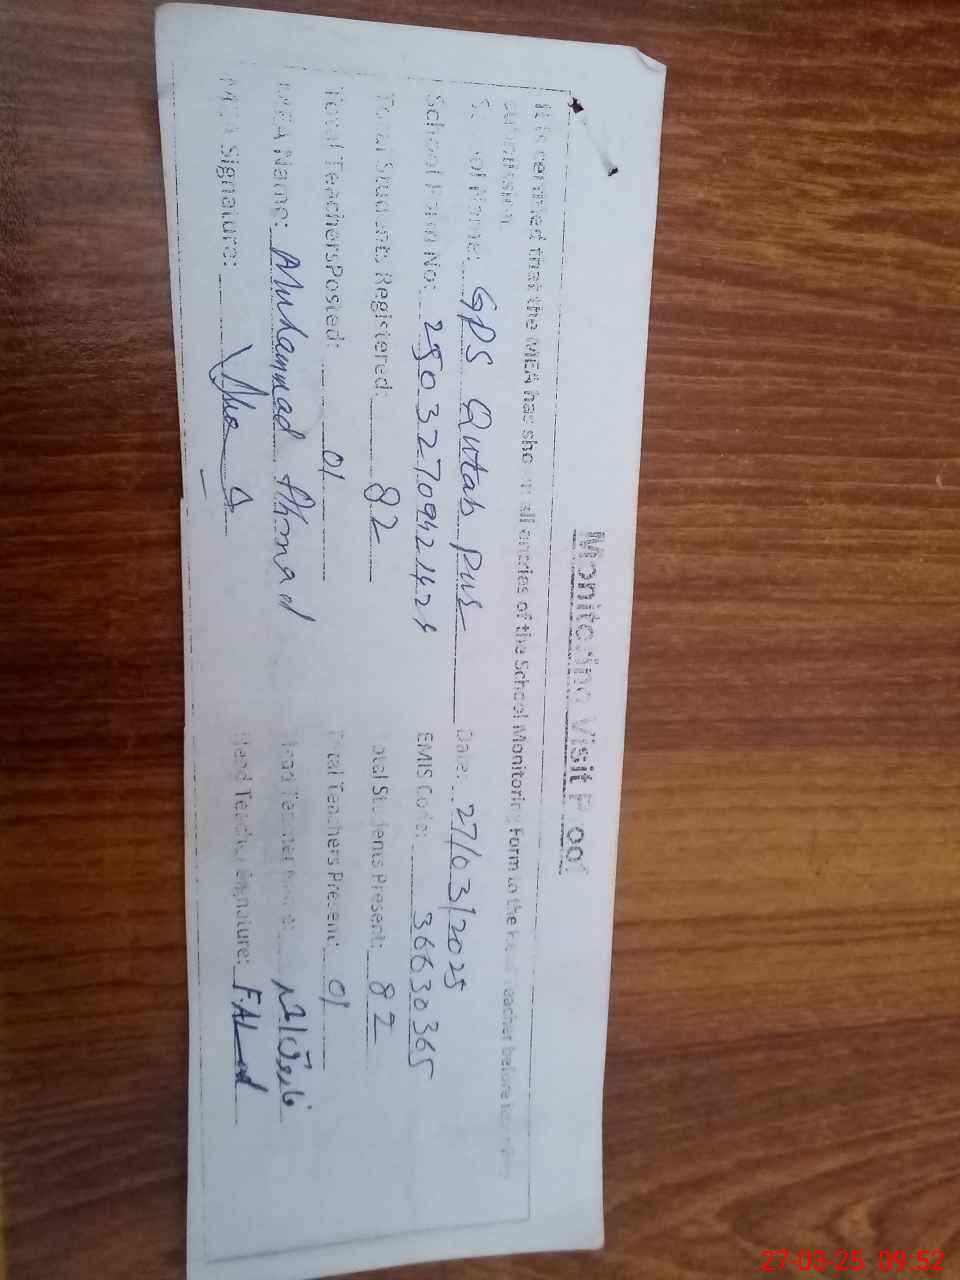 Monitoring Visit Proof
It is certified that the MEA has shown all entries of the School Monitoring Form to the Head Teacher before
submission.
School Name: GPS Qutab Pur Date: 27/03/2025
School Form No: EMIS Code: 36630365
Total Students Registered: 82 Total Students Present: 82
Total Teachers Posted: 01 Total Teachers Present: 01
MEA Name: Muhammad Head Teacher Name: فاروق احمد
MEA Signature: Head Teacher Signature:
27-03-25 09:52